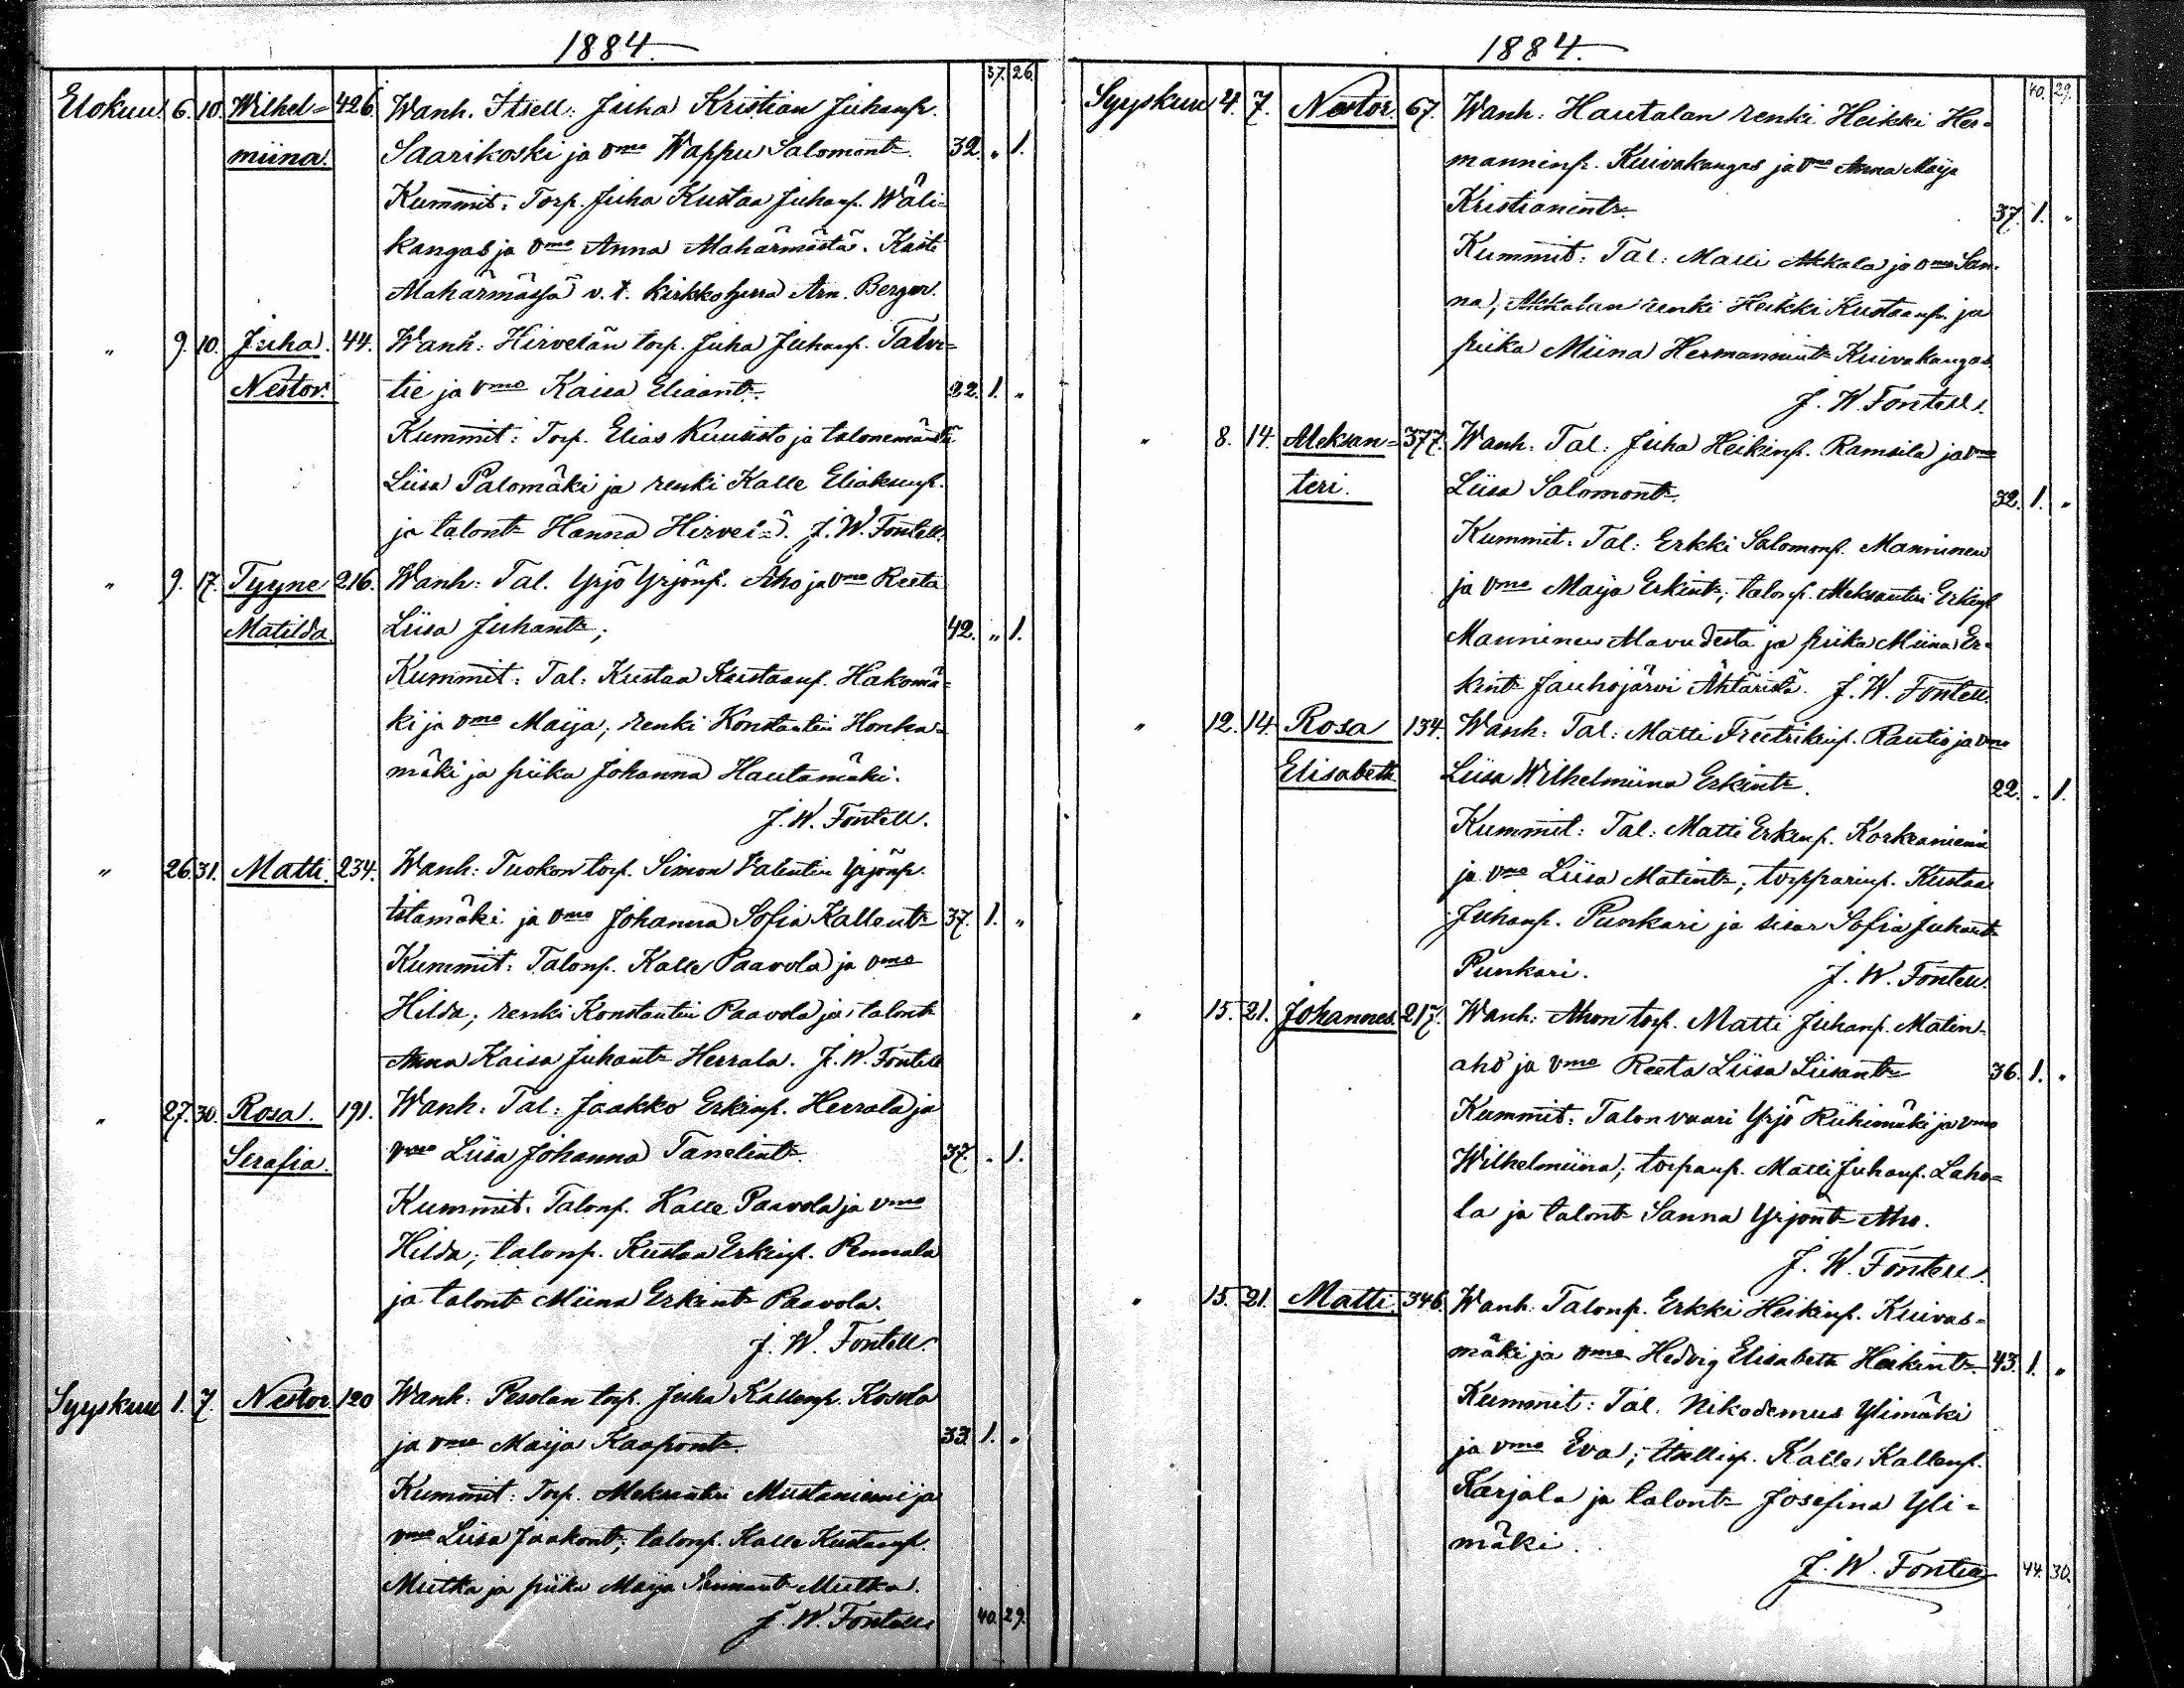 1884.
37. 26.
Elokuu 6. 10. Wilhel= 426. Wanh. Itsell: Juha Kristian Juhanp.
miina. Saarikoski ja vmo Wappu Salomont. 32. „ 1.
Kummit: Torp. Juha Kustaa Juhanp. Wäli-
kangas ja vmo Anna Alahärmästä. Kasti
Alahärmässä v. t. kirkkoherra Arn. Berger.
„ 9. 10. Juha 44. Wanh: Hirvelän torp. Juha Juhanp. Talvi=
Nestor. tie ja vmo Kaisa Eliaant. 22. 1. „
Kummit: Torp. Elias Kuusisto ja talonemäntä
Liisa Palomäki ja renki Kalle Eliaksenp.
ja talont. Hanna Hirvel=ä. J. W. Fontell.
„ 9. 17. Tyyne 216. Wanh: Tal. Yrjö Yrjönp. Aho ja vmo Reeta
Matilda. Liisa Juhant; 42. „ 1.
Kummit: Tal: Kustaa Kustaanp. Hakomä=
ki ja vmo Maija; renki Konstantin Honka=
mäki ja piika Johanna Hautamäki.
J. W. Fontell.
„ 26. 31. Matti. 234. Wanh: Tuokon torp. Simon Valentin Yrjönp.
Istamäki ja vmo Johanna Sofia Kallent= 37. 1. „
Kummit: Talonp. Kalle Paavola ja vmo
Hilda; renki Konstantin Paavola ja talont
Anna Kaisa Juhant= Herrala. J. W. Fontell
„ 27. 30. Rosa. 191. Wanh: Tal: Jaakko Erkinp. Herrala ja
Serafia. vmo Liisa Johanna Tanelint=. 37. „ 1.
Kummit: Talonp. Kalle Paavola ja vmo
Hilda; talonp. Kustaa Erkinp. Pennala
ja talont= Miina Erkint= Paavola.
J. W. Fontell.
Syyskuu 1. 7. Nestor. 120 Wanh: Pesolan torp. Juha Kallenp. Kosola
ja vmo Maija Kaapont=. 33. 1. „
Kummit: Torp. Aleksanteri Mustaniemi ja
vmo Liisa Jaakont; talonp. Kalle Kustaanp.
Mutka ja piika Maija Mutka.
J. W. Fontell 40. 29.
1884.
40. 29.
Syyskuu 4. 7. Nestor. 67. Wanh: Hautalan renki Heikki Her=
manninp. Kuivakangas ja vmo Anna Maija
Kristianint= 37. 1. „
Kummit: Tal: Matti Akkala ja vmo San=
na; Akkalan renki Heikki Kustaanp. ja
piika Miina Hermannint= Kuivakangas.
J. W. Fontell.
„ 8. 14. Aleksan= 377. Wanh. Tal: Juha Heikinp. Ramsila ja vmo
teri. Liisa Salomont=. 32. 1. „
Kummit. Tal: Erkki Salomonp. Manninen
ja vmo Maija Erkint=; talonp. Aleksanteri Erkinp
Manninen Alavudesta ja piika Miina Er=
kint= Jauhojärvi Ähtäristä. J. W. Fontell.
„ 12. 14. Rosa 134. Wanh: Tal: Matti Freetrikinp. Rautio ja vmo
Elisabeth Liisa Wilhelmiina Erkint=. 22. „ 1.
Kummit: Tal: Matti Erkinp. Korkeaniemi
ja vmo Liisa Matint=; torpparinp. Kustaa
Juhanp. Punkari ja sisar Sofia Juhant=
Punkari. J. W. Fontell.
„ 15. 21. Johannes. 217. Wanh: Ahon torp. Matti Juhanp. Matin=
aho ja vmo Reeta Liisa Liisant= 36. 1. „
Kummit: Talon vaari Yrjö Riihimäki ja vmo
Wilhelmiina; torpanp. Matti Juhanp. Laho=
la ja talont= Sanna Yrjönt= Aho.
J. W. Fontell.
„ 15. 21. Matti. 346. Wanh: Talonp. Erkki Heikinp. Kuivas=
mäki ja vmo Hedvig Elisabeth Heikint= 43. 1. „
Kummit: Tal. Nikodemus Ylimäki
ja vmo Eva; Itsellisp. Kalle Kallenp.
Karjala ja talont= Josefina Yli=
mäki.
J. W. Fontell 44. 30.